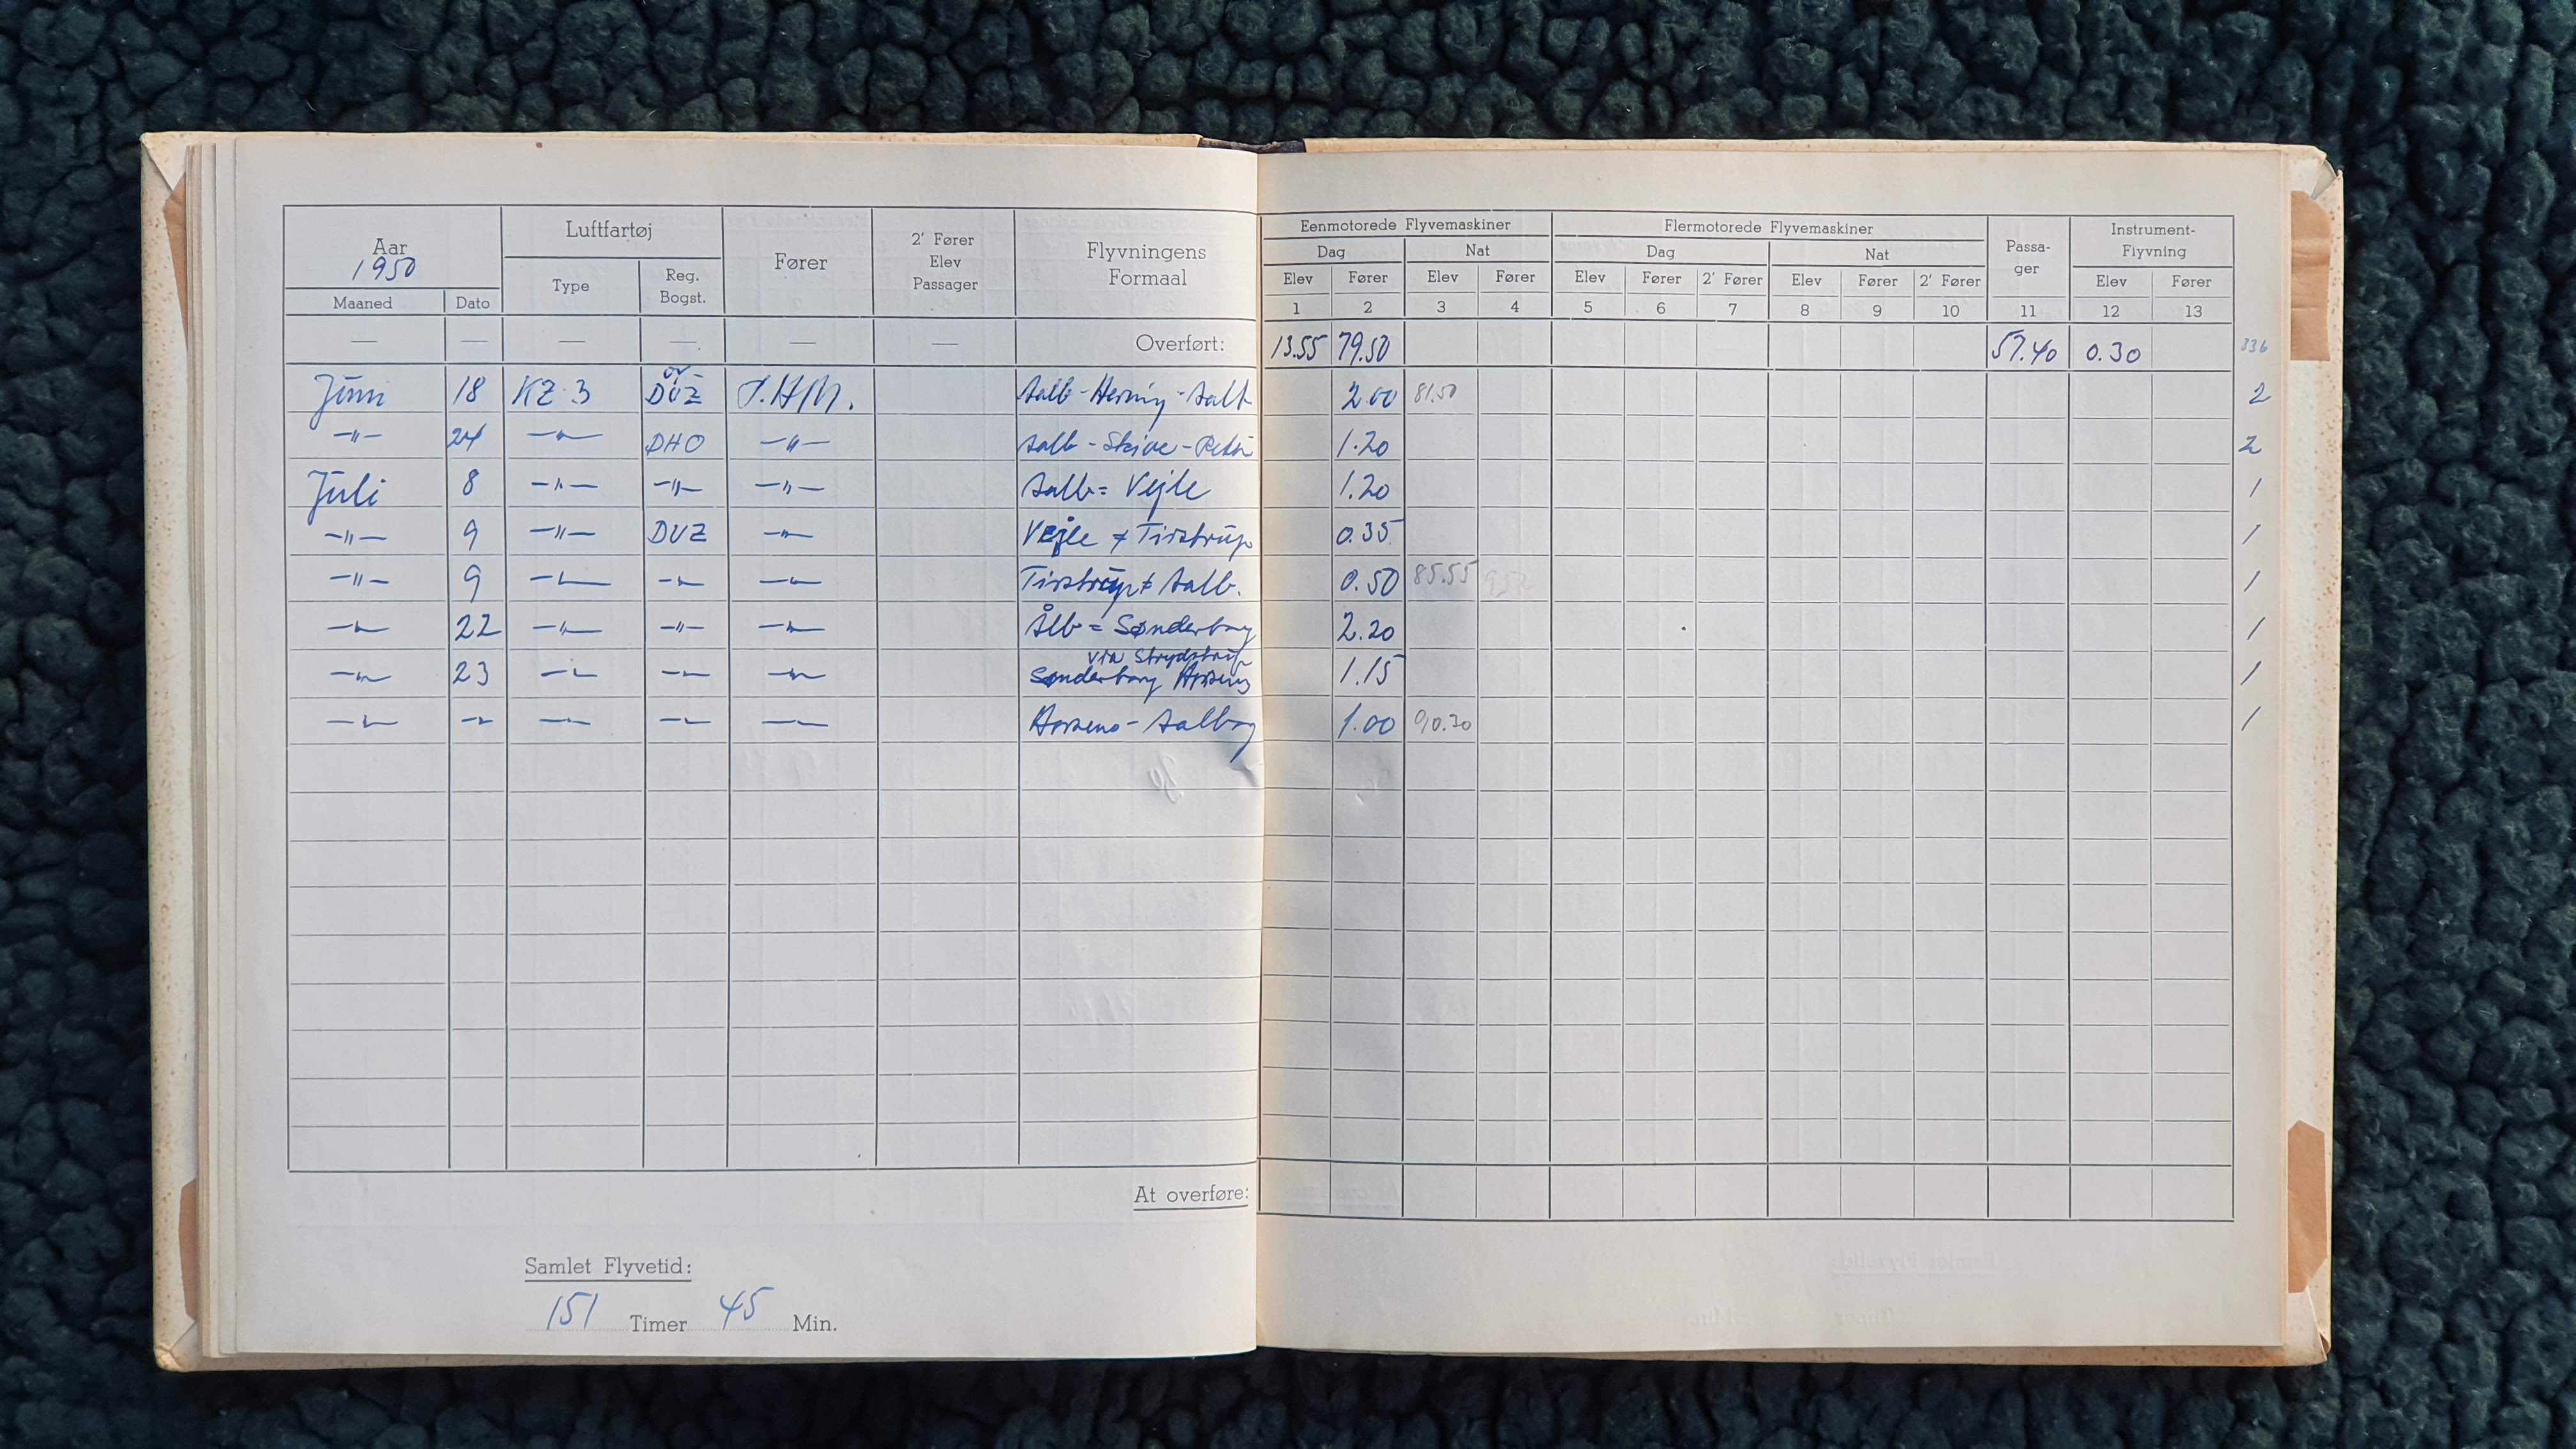 Aar 1950 Luftfartøj Fører 2' Fører Elev Passager Flyvningens Formaal Eenmotorede Flyvemaskiner Flermotorede Flyvemaskiner Passa-ger Instrument-Flyvning
Dag Nat Dag Nat
Maaned Dato Type Reg. Bogst. Elev Fører Elev Fører Elev Fører 2' Fører Elev Fører 2' Fører Elev Fører
1 2 3 4 5 6 7 8 9 10 11 12 13
— — — — — — Overført: 13.55 79.50 57.40 0.30 336
Juni 18 KZ-3 DUZ Aalb-Herning-Aalb 2.00 81.50 2
-"- 24 -"- DHO -"- Aalb-Skive-Retur 1.20 2
Juli 8 -"- -"- -"- Aalb= Vejle 1.20 1
-"- 9 -"- DUZ -"- Vejle ≠ Tirstrup 0.35 1
-"- 9 -"- -"- -"- Tirstrup ≠ Aalb. 0.50 85.55 1
-"- 22 -"- -"- -"- Ålb = Sønderborg 2.20 1
-"- 23 -"- -"- -"- Sønderborg via Skrydstrup Horsens 1.15 1
-"- -"- -"- -"- -"- Horsens-Aalborg 1.00 90.30 1
At overføre:
Samlet Flyvetid:
151 Timer 45 Min.